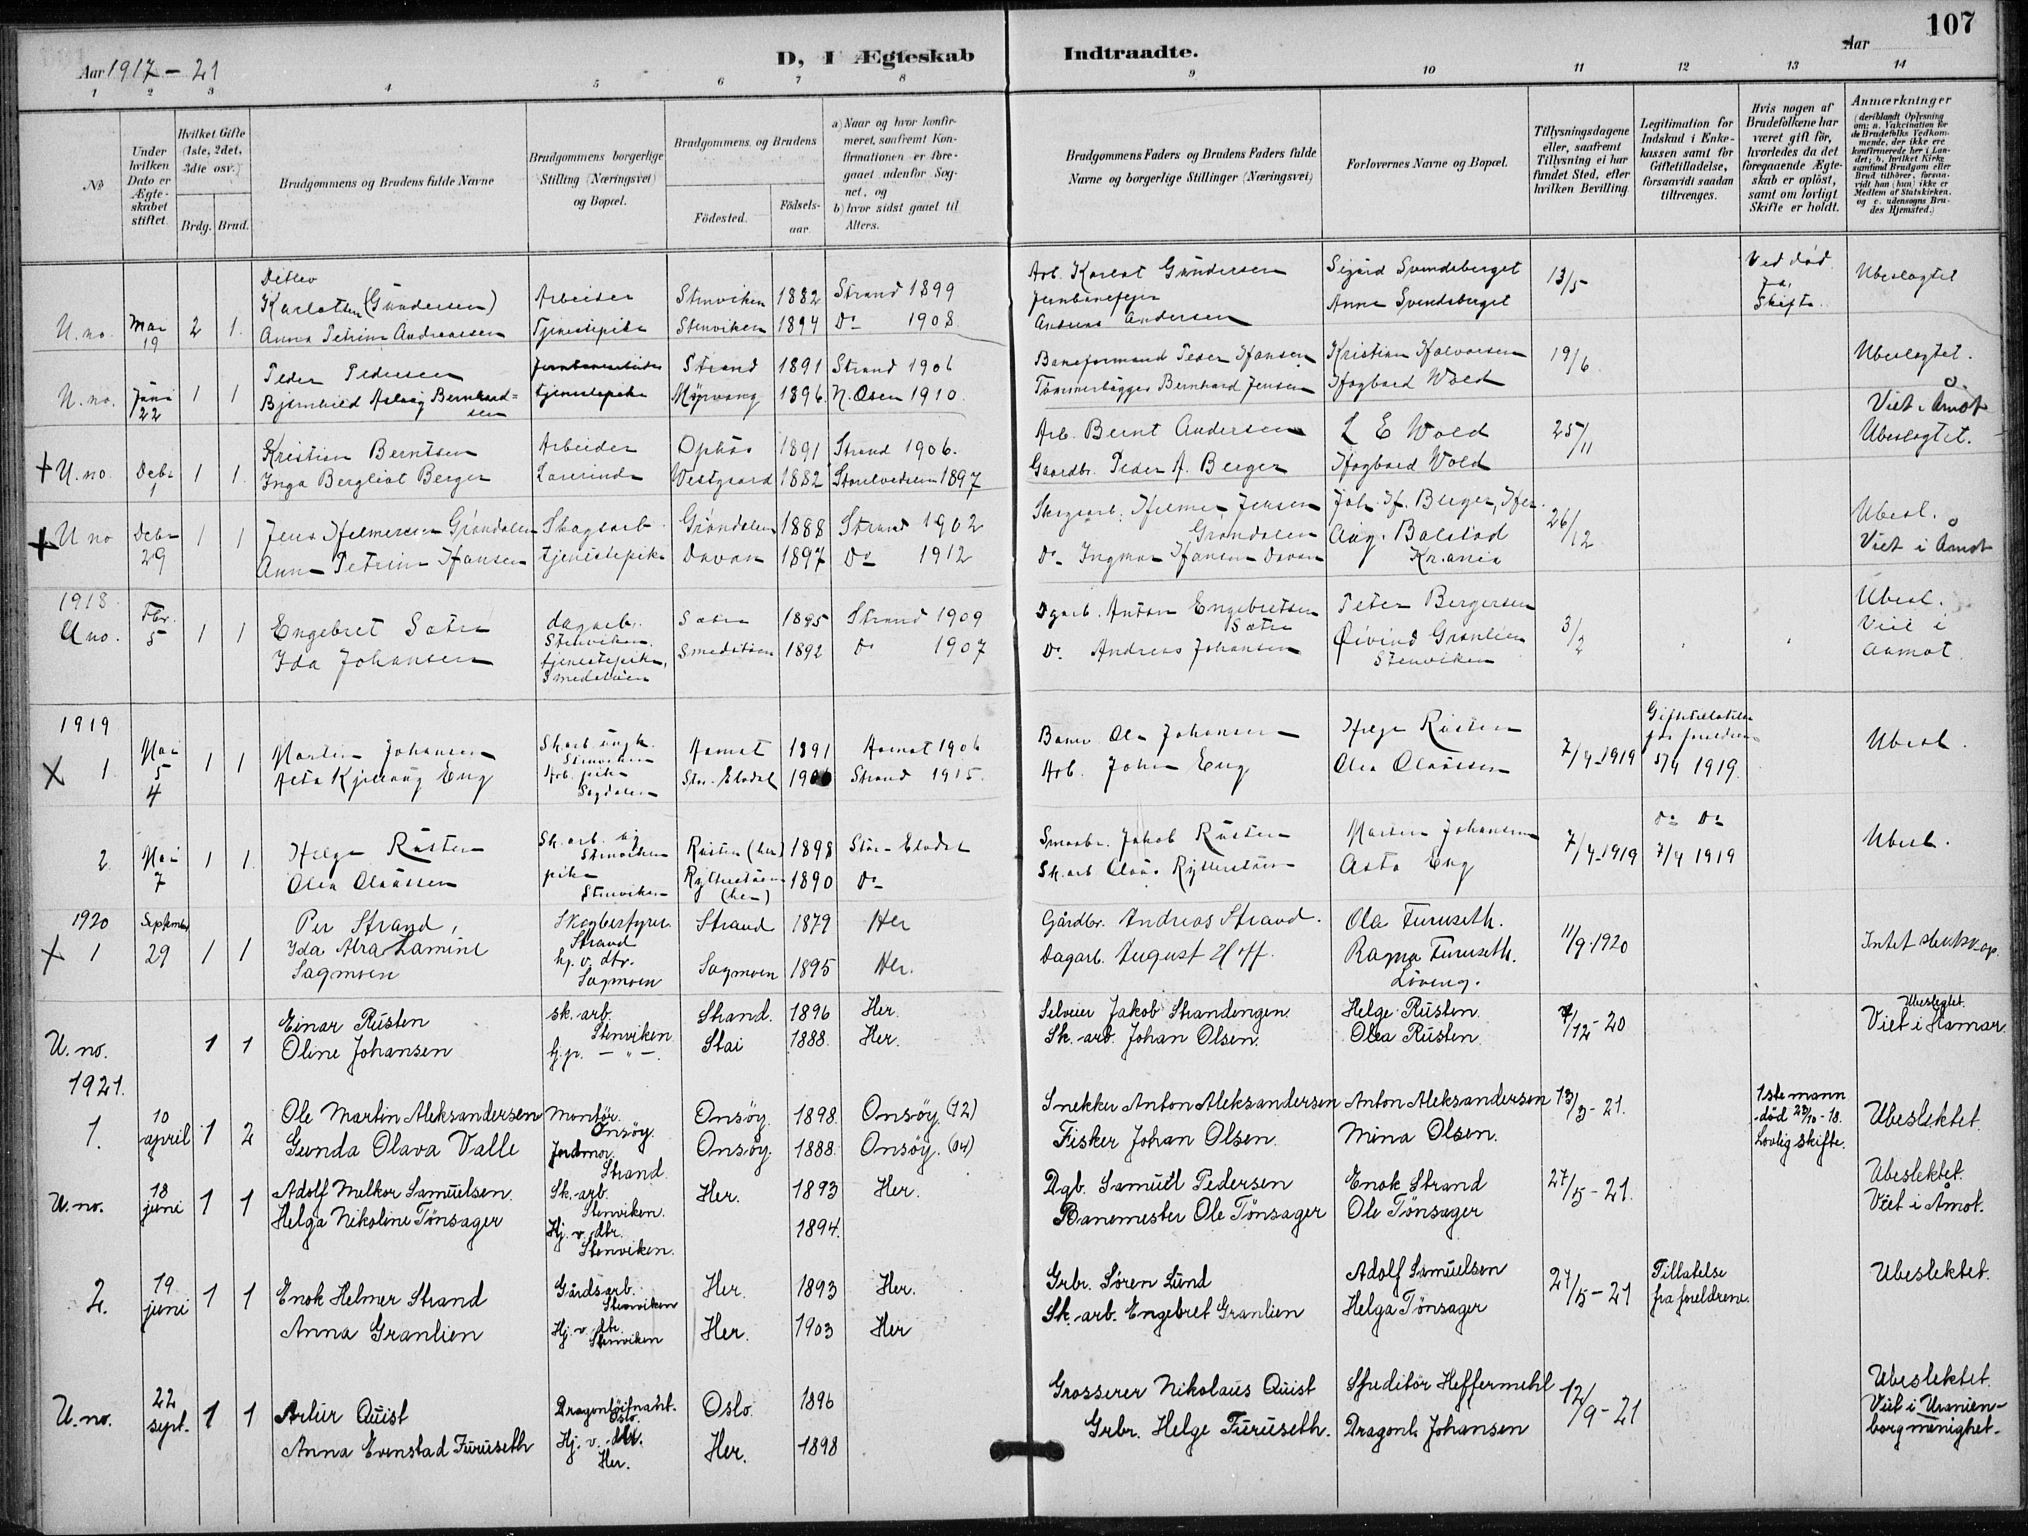 107
D, I Ægteskab Indtraadte.
Aar 1917 - 21
Aar
1 2 3 4 5 6 7 8 9 10 11 12 13 14
No
Under hvilken Dato er Ægteskabet stiftet.
Hvilket Gifte (1ste, 2det, 3die osv.)
Brdg. Brud.
Brudgommens og Brudens fulde Navne
Brudgommens borgerlige Stilling (Næringsvei) og Bopæl.
Brudgommens og Brudens
Fødested.
Fødselsaar.
a) Naar og hvor konfirmeret, saafremt Konfirmationen er foregaaet udenfor Sognet, og
b) hvor sidst gaaet til Alters.
Brudgommens Faders og Brudens Faders fulde Navne og borgerlige Stillinger (Næringsvei)
Forlovernes Navne og Bopæl.
Tillysningsdagene eller, saafremt Tillysning ei har fundet Sted, efter hvilken Bevilling.
Legitimation for Indskud i Enkekassen samt for Giftetilladelse, forsaavidt saadan tiltrænges.
Hvis nogen af Brudefolkene har været gift før, hvorledes da det foregaaende Ægteskab er opløst, samt om lovligt Skifte er holdt.
Anmærkninger (deriblandt Oplysning om: a. Vaccination for de Brudefolks Vedkommende, der ikke ere konfirmerede her i Landet; b. hvilket Kirkesamfund Brudgom eller Brud tilhører, forsaavidt han (hun) ikke er Medlem af Statskirken, og c. udensogns Brudes Hjemsted.)
U. no. Mai 19 2 1
Ditlev Karlotten (Gundersen) Arbeider Stenviken 1882 Strand 1899 Arb. Karlot Gundersen Sigurd Svendsberget 13/5 Ved død Skifte Ubeslegtet
Anna Petrine Andreassen Tjenestepike Stenviken 1894 Do 1908 Andersen Anne Svendsberget
U. no. Juni 22 1 1
Peder Pedersen Strand 1891 Strand 1906 Baneformand Peder Hansen Kristian Halvorsen 19/6 Ubeslegtet.
Bjørnhild Aslaug Bernhardsen tjenestepike 1896 N. Osen 1910 Bernhard Jensen Hagbard Wold Viet i Åmot
+ U. no. Debr 1 1 1
Kristian Berntsen Arbeider Ophus 1891 Strand 1906. Arb. Bernt Andersen L E Wold 25/11 Ubeslegtet.
Inga Bergliot Berger Lærerinde Vestgaard 1882 1897 Gaardbr. Peder A. Berger Hagbard Wold
+ U no Debr 29 1 1
Jens Hilmersen Grøndalen Skogsarb. Grøndalen 1888 Strand 1902 Skogsarb. Hilmer Jensen Grøndalen Joh. H. Berger, Her. 26/12 Ubesl.
Anna Petrine Hansen tjenestepike Davan 1897 Do 1912 Do Ingmar Hansen Davan Aug. Bolstad Kr.ania Viet i Åmot
1918
U no. Fbr. 5 1 1
Engebret Sætre dagarb. Stenviken Sætre 1895 Strand 1909 Dgarb. Anton Engebretsen Sætre Peter Bergersen 3/2 Ubesl.
Ida Johansen tjenestepike, Smedstuen Smedstuen 1892 Do 1907 Do. Andreas Johansen Øivind Granlien Stenviken Viet i Aamot
1919
X 1. Mai 5 4 1 1
Martin Johansen Sk.arb. ungk. Stenviken Aamot 1891 Aamot 1906 Ole Johansen Helge Rusten 7/4-1919 Ubesl.
Asta Kjellaug Eng Arb. pike Sagdalen Stor-Elvdal Strand 1915. Arb. John Eng Olea Olaussen 5/4 1919.
2 Mai 7 1 1
Helge Rusten Sk.arb. ug Stenviken Rusten (her) 1898 Stor-Elvdal Smaabr. Jakob Rusten Martin Johansen 7/4-1919 do do 7/4 1919 Ubesl.
Olea Olaussen pike Stenviken (her) 1890 Do Sk.arb Olaus Asta Eng
1920
X 1 September 29 1 1
Per Strand, Skogbestyrer Strand Strand 1879 Her Gårdbr. Andreas Strand. Ola Furuseth. 11/9 1920 Intet slektskap.
Ida Alra Lamine Sagmoen hj. v. dtr. Sagmoen Sagmoen 1895 Her. Dagarb. August Hoff. Ragna Furuseth. Løveng.
U. no. 1 1
Einar Rusten sk.-arb. Stenviken Strand. 1896 Her. Selveier Jakob Strandengen Helge Rusten. /12-20 Ubeslegtet. Viet i Hamar.
Oline Johansen Stai 1888. Her. Sk.-arb. Johan Olsen. Olea Rusten
1921.
1. 10 april 1 2
Ole Martin Aleksandersen Montør. Onsøy. Onsøy. 1898. Onsøy. (12) Snekker Anton Aleksandersen Anton Aleksandersen 13/3-21. 1ste mann død 23/10-18. Lovlig skifte. Ubeslektet.
Gunda Olava Valle Jordmor Strand. Onsøy. 1888. Onsøy. (04) Fisker Johan Olsen. Mina Olsen.
U. no. 18 juni 1 1
Adolf Melkor Samuelsen. Sk.-arb. Stenviken. Her. 1893 Her. Dgb. Samuel Pedersen Enok Strand 27/5-21. Ubeslektet.
Helga Nikoline Tønsager Hj. v. dtr. Stenviken. 1894. Banemester Ole Tønsager Ole Tønsager Viet i Åmot.
2. 19 juni 1 1
Enok Helmer Strand Gårdsarb. Stenviken Her. 1893 Her. Grbr. Søren Lund Adolf Samuelsen 27/5-21 Tillatelse fra foreldrene. Ubeslektet.
Anna Granlien Hj. v. dtr. Stenviken Her. 1903 Her Sk.-arb. Engebret Granlien Helga Tønsager
U. no. 22 sept. 1 1
Artur Quist Oslo. Oslo. 1896 Grosserer Nikolaus Quist Speditør Heffermehl 12/9-21 Ubeslektet.
Anna Evenstad Furuseth Hj. v. dtr. Her. Her. 1898 Grbr. Helge Furuseth. Dragonl. Johansen Viet i Uranienborg menighet.